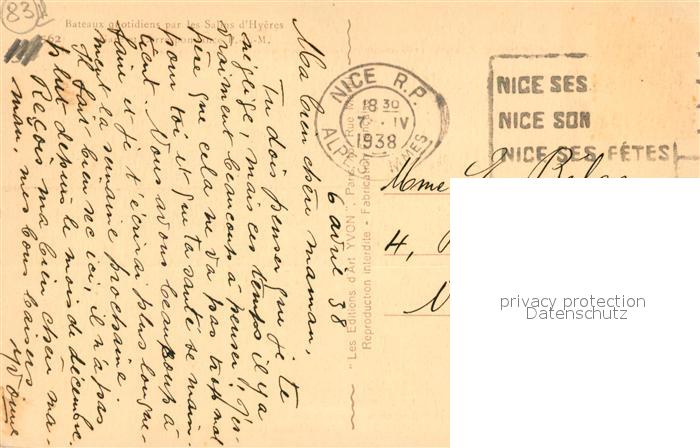 83
Bateaux quotidiens par les Salins d'Hyères
562
6 avril 38
Ma bien chère maman,
Tu dois penser que je te
néglige, mais ces temps il y a
vraiment beaucoup à penser. J'es-
père que cela ne va pas trop mal
pour toi et que ta santé se main-
tient. Nous avons beaucoup à
faire et je t'écrirai plus longue-
ment la semaine prochaine.
Il fait bien sec ici, il n'a pas
plut depuis le mois de décembre.
Reçois ma bien chère ma-
man, mes bons baisers
Yvonne
"Les Editions d'Art YVON", Paris, Rue
Reproduction interdite - Fabrication
NICE R.P.
18 30
7 - IV
1938
ALPES MMES
NICE SES
NICE SON
NICE SES FÊTES
Mme
4,
privacy protection
Datenschutz